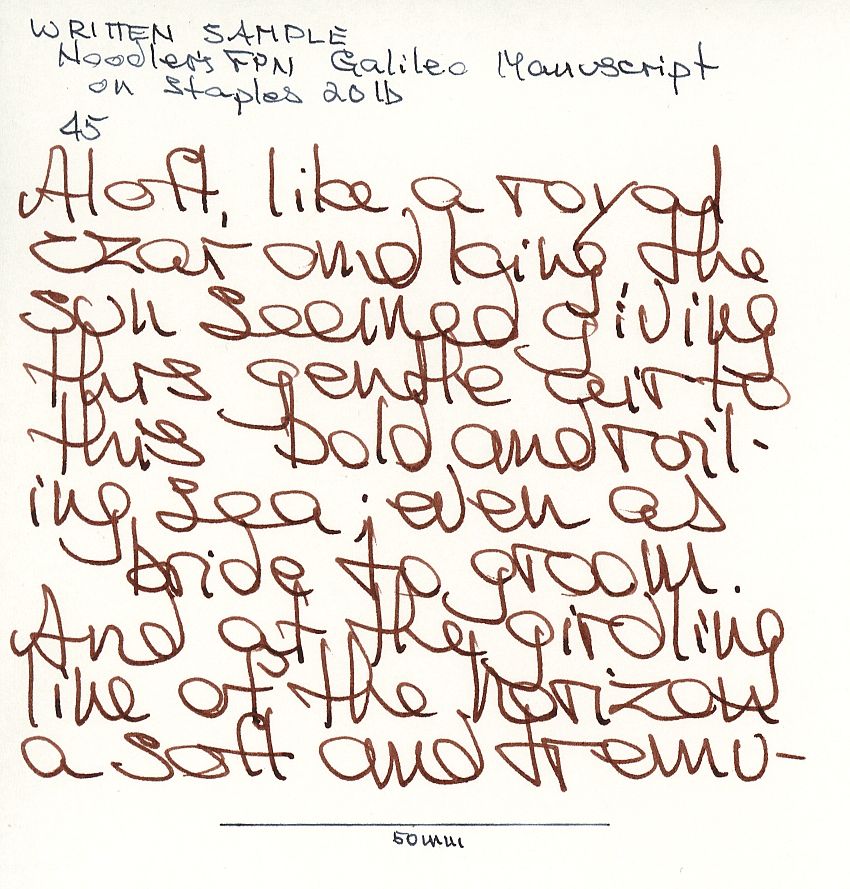 WRITTEN SAMPLE
Noodler's FPN Galileo Manuscript
on Staples 20 lb
45
Aloft, like a royal
czar and king the
sun seemed giving
this gentle air to
this bold and roil-
ing sea; even as
bride to groom.
And at the girdling
line of the horizon
a soft and tremu-
50mm